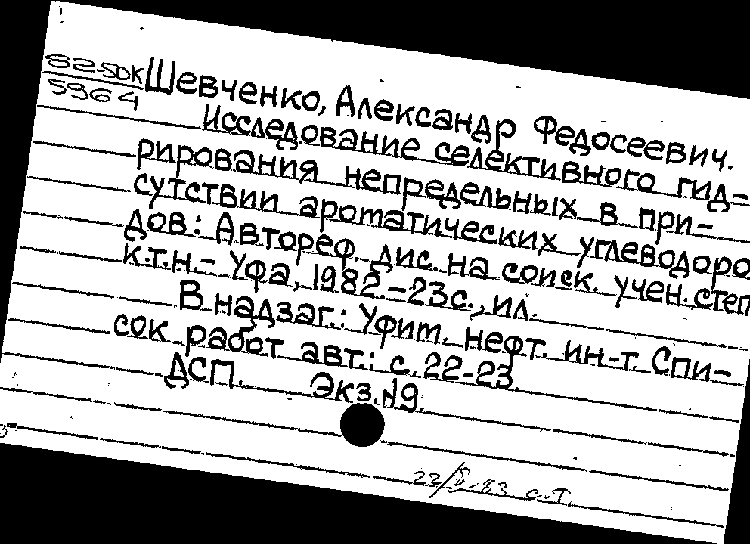 82-50К
5964
Шевченко, Александр Федосеевич.
Исследование селективного гид=
рирования непредельных в при-
сутствии ароматических углеводоро
дов: Автореф. дис. на соиск. учен. степ
к.т.н.- Уфа, 1982.-23с., ил.
В надзаг.: Уфит. нефт. ин-т. Спи-
сок работ авт.: с. 22-23.
ДСП. Экз. №9.